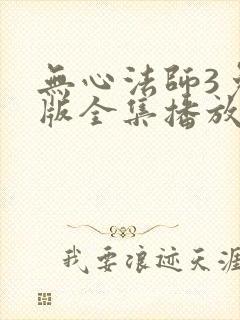 無心法師3
版全集播放
我要浪迹天涯